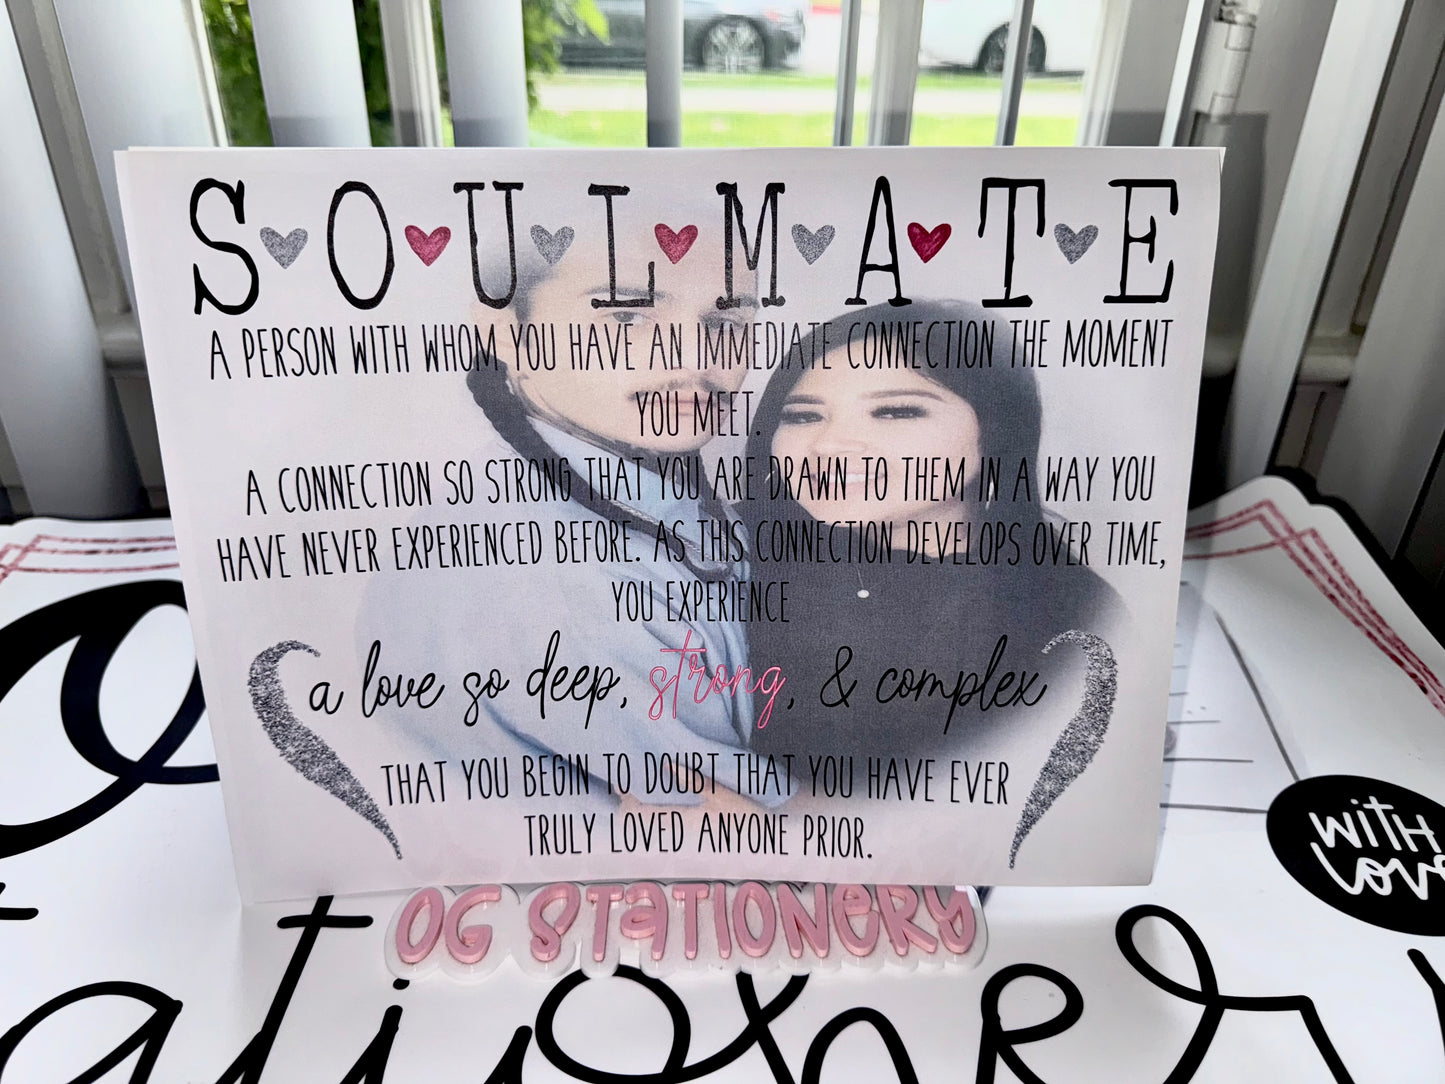 SOULMATE
A PERSON WITH WHOM YOU HAVE AN IMMEDIATE CONNECTION THE MOMENT
YOU MEET.
A CONNECTION SO STRONG THAT YOU ARE DRAWN TO THEM IN A WAY YOU
HAVE NEVER EXPERIENCED BEFORE. AS THIS CONNECTION DEVELOPS OVER TIME,
YOU EXPERIENCE
a love so deep, strong, & complex
THAT YOU BEGIN TO DOUBT THAT YOU HAVE EVER
TRULY LOVED ANYONE PRIOR.
OG STATIONERY
WITH
LOVE